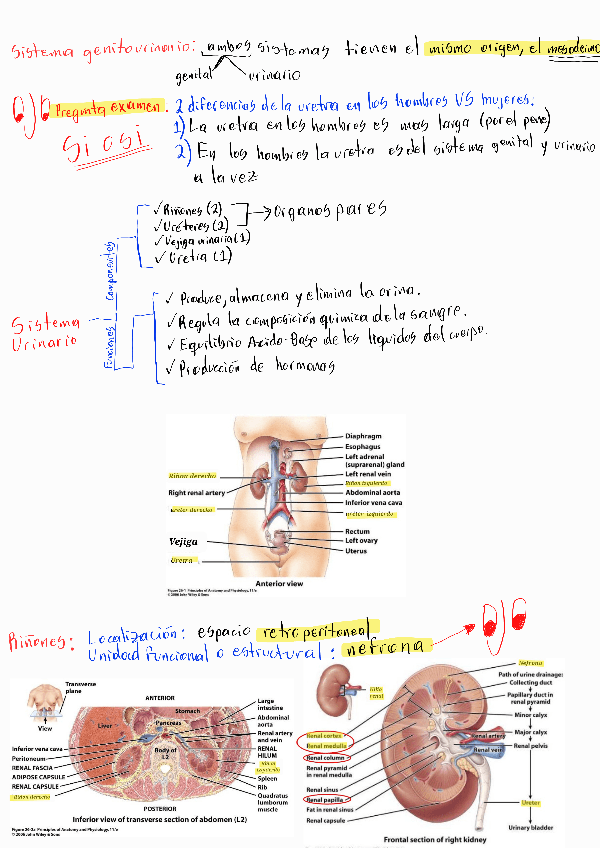 Sistema genitourinario: ambos sistemas tienen el mismo origen, el mesodermo
genital urinario
Pregunta examen. 2 diferencias de la uretra en los hombres VS mujeres:
Si o si
1) La uretra en los hombres es mas larga (por el pene)
2) En los hombres la uretra es del sistema genital y urinario
a la vez
Sistema Urinario
Componentes
✓ Riñones (2)
✓ Uréteres (2)
→ Organos pares
✓ Vejiga urinaria (1)
✓ Uretra (1)
Funciones
✓ Produce, almacena y elimina la orina.
✓ Regula la composición química de la sangre.
✓ Equilibrio Acido-Base de los liquidos del cuerpo.
✓ Producción de hormonas
Diaphragm
Esophagus
Left adrenal
(suprarenal) gland
Riñon derecho
Left renal vein
Riñon izquierdo
Right renal artery
Abdominal aorta
Inferior vena cava
ureter derecho
ureter izquierdo
Rectum
Vejiga
Left ovary
Uterus
Uretra
Anterior view
Figure 26-1 Principles of Anatomy and Physiology, 11/e
© 2006 John Wiley & Sons
Riñones: Localización: espacio retroperitoneal
Unidad funcional o estructural: nefrona
Transverse
plane
View
ANTERIOR
Liver
Stomach
Pancreas
Body of
L2
Large
intestine
Abdominal
aorta
Renal artery
and vein
RENAL
HILUM
Riñon
izquierdo
Spleen
Rib
Quadratus
lumborum
muscle
Inferior vena cava
Peritoneum
RENAL FASCIA
ADIPOSE CAPSULE
RENAL CAPSULE
Riñon derecho
POSTERIOR
Inferior view of transverse section of abdomen (L2)
Figure 26-2a Principles of Anatomy and Physiology, 11/e
© 2006 John Wiley & Sons
Hilio
renal
Nefrona
Path of urine drainage:
Collecting duct
Papillary duct in
renal pyramid
Minor calyx
Major calyx
Renal pelvis
Ureter
Urinary bladder
Renal artery
Renal vein
Renal cortex
Renal medulla
Renal column
Renal pyramid
in renal medulla
Renal sinus
Renal papilla
Fat in renal sinus
Renal capsule
Frontal section of right kidney